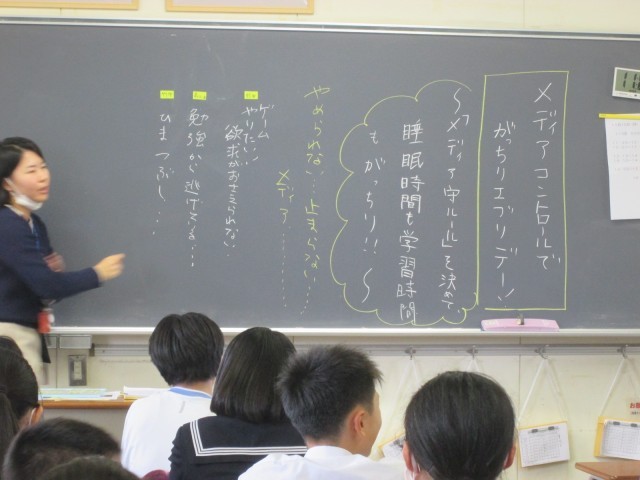 メディアコントロールで
がっちりエブリデー!
～「メディア守ルール」を決めて、
睡眠時間も学習時間
もがっちり!!～
やめられない…止まらない…
メディア………
ゲーム
やりたい
欲求がおさえられない
勉強から逃げてる…
ひまつぶし…